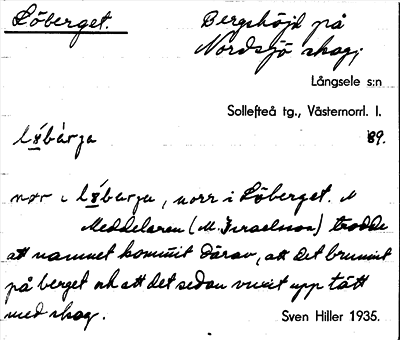 Löberget.
Bergshöjd på
Nordsjö skog;
Långsele s:n
Sollefteå tg., Västernorrl. l.
89.
norr i Löberget.
Meddelaren (M. Israelsson) trodde
att namnet kommit därav, att det brunnit
på berget och att det sedan vuxit upp tätt
med skog.
Sven Hiller 1935.